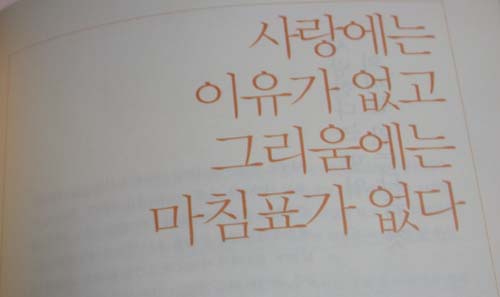 사랑에는
이유가 없고
그리움에는
마침표가 없다